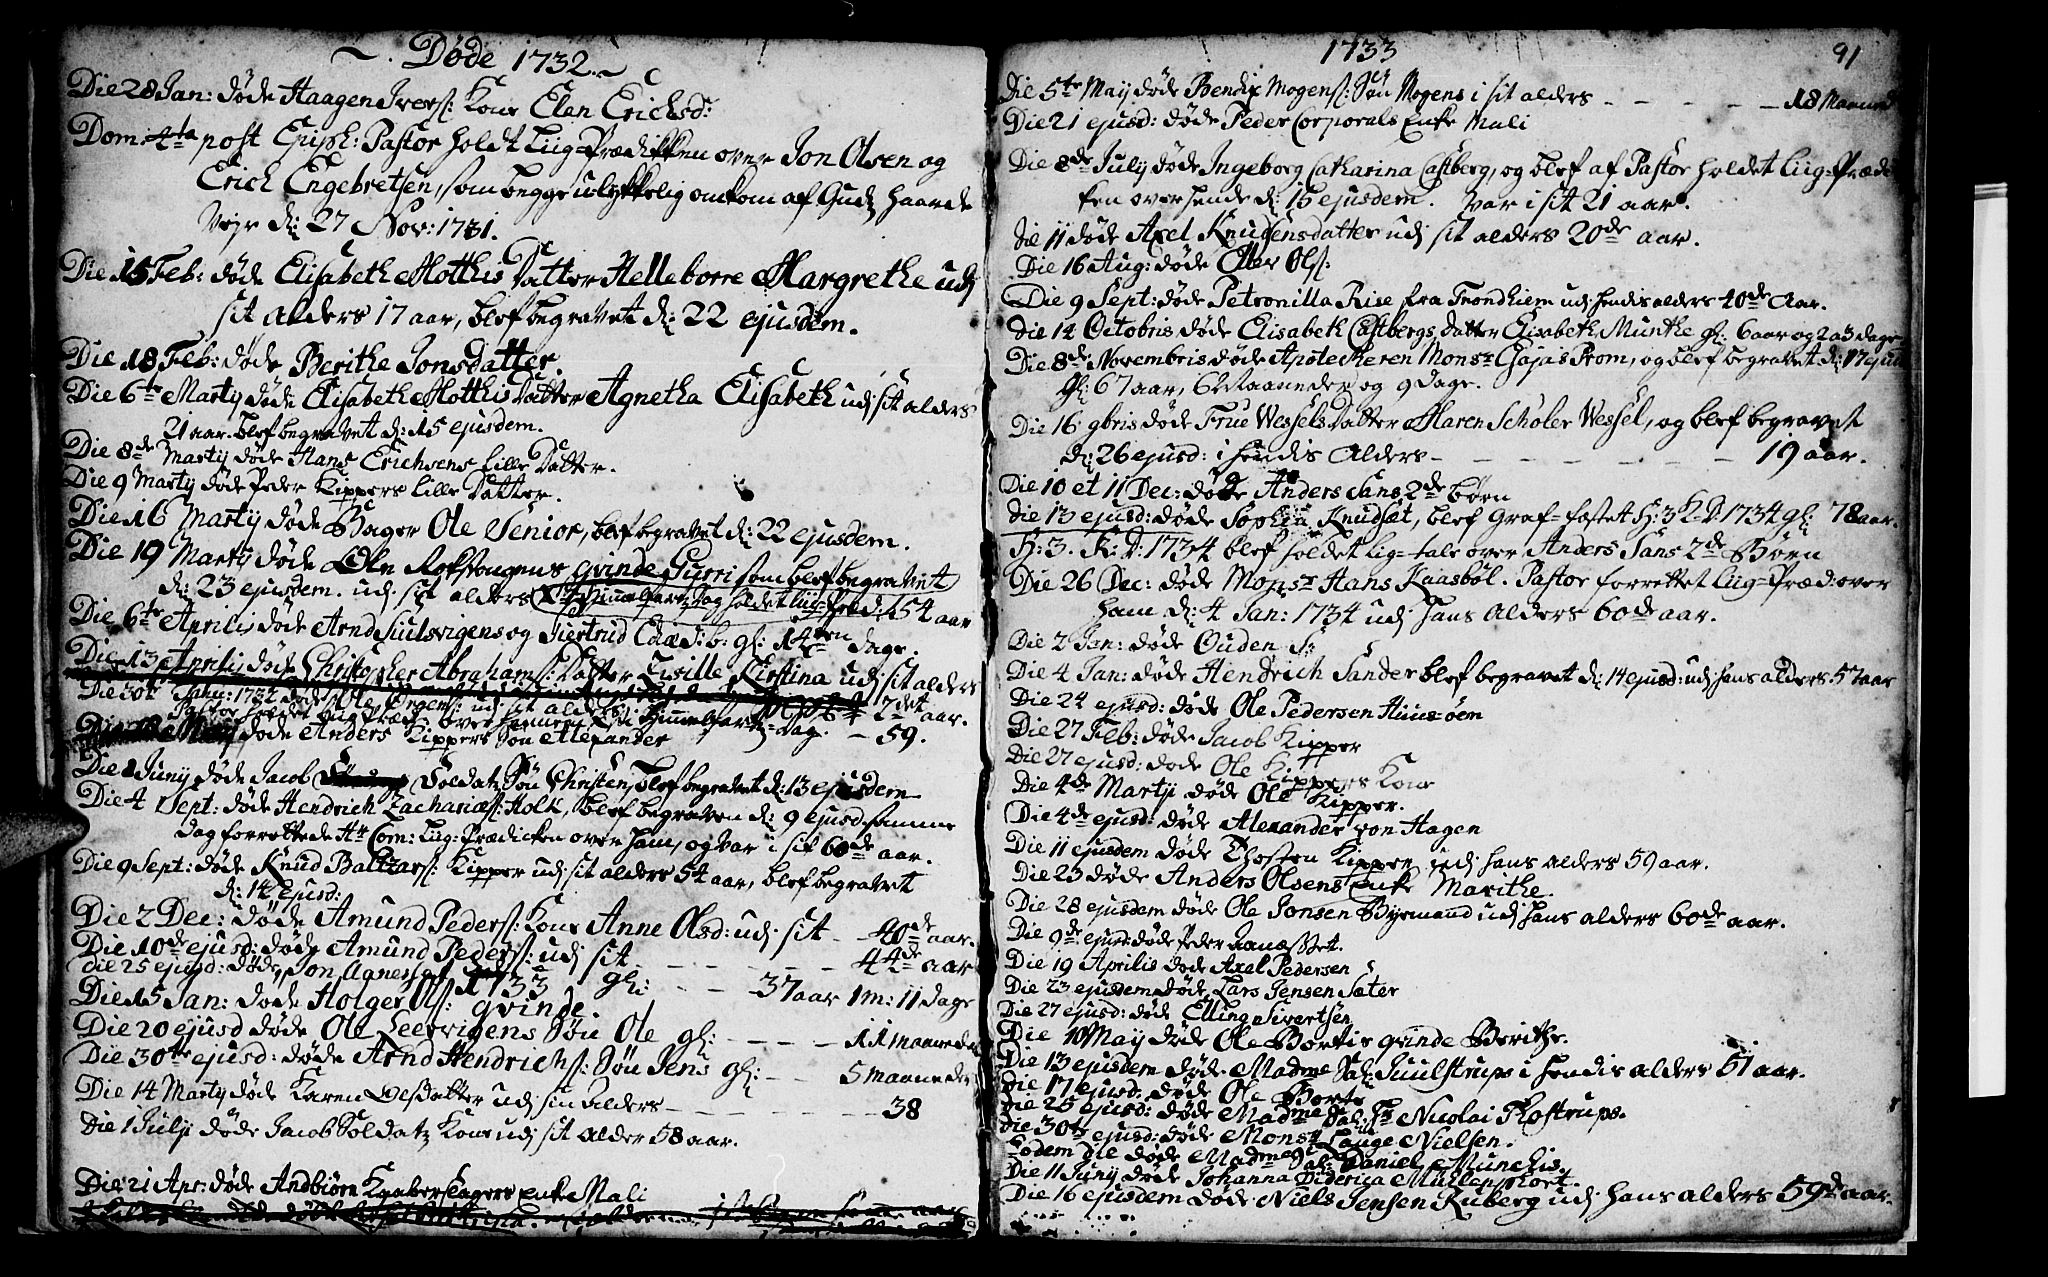 Døde 1732.
Die 28 Jan: døde Haagen Ivers: Kone Elen Erichsd:
Dom: 4ta post Epiph: Pastor holdt Liig-Prædikken over Jon Olsen og
Erich Engebretsen, som begge ulykkelig omkom af Guds haarde
Vejr d: 27 Nov: 1731.
Die 15 Feb: døde Elisabeth Motthis Datter Helleborre Margrethe udj
sit alders 17 aar, blef begravet d: 22 ejusdem.
Die 18 Feb: døde Berithe Jonsdatter.
Die 6te Martij døde Elisabeth Motthis Datter Agnetha Elisabeth udj sit alders
21 aar. blef begravet d: 15 ejusdem.
Die 8de Martij døde Hans Erichsens lille Datter.
Die 9 Martij døde Peder Kippers lille Datter.
Die 16 Martij døde Bager Ole Senior, blef begravet d: 22 ejusdem.
Die 19 Martij døde Ole Rokstangens qvinde Gurri som blef begravet
d: 23 ejusdem. udj sit alders 54 aar
Die 6te Aprilis døde Arnd Juulsvigens og Giertrud gl: 14ten dage.
Die 13 Aprilij døde Christopher Abrahams: Datter Zisille Kirstina udj sit alders
2det aar.
Die 30te Janu: 1732 døde udj sit alders
Pastor holdet Liig-Præd: over hannem Chr: Himmelfarts-dag. - 59.
døde Anders Kippers Søn Alexander
Die 8 Junij døde Jacob Soldatz Søn Christen, blef begravet d: 13 ejusdem
Die 4 Sept: døde Hendrich Zachariæs: Holk, blef begraven d: 9 ejusd: samme
dag forrettede Hr Com: Liig-Prædicken over ham, og var i sit 60de aar.
Die 9 Sept: døde Knud Baltzars: Kipper udj sit alders 54 aar, blef begravet
d: 14 ejusd:
Die 2 Dec: døde Amund Peders: Kone Anne Olsd: udj sit - 40de aar.
Die 10de ejusd: døde Amund Peders: udj sit - - - - 44de aar
Die 25 ejusd: døde Jon gl: - - 37 aar 1 m: 11 dage
1733
Die 15 Jan: døde Holger Ols: qvinde
Die 20 ejusd døde Ole Leervigens Søn Ole gl: - - - - 11 maaneder
Die 30te ejusd: døde Arnd Hendrichs: Søn Jens gl: - - 5 maaneder
Die 14 Martij døde Karen Olsdatter udj sin alders - - - - - 38
Die 1 Julij døde Jacob Soldatz Kone udj sit alder 58 aar.
Die 21 Apr: døde Andbiørn Kaaberslagers Enke Mali
1733
91
Die 5te Maij døde Bendix Mogens: Søn Mogens i sit alders - - - - - 18 Maaned
Die 21 ejusd: døde Peder Corporals Enke Mali
Die 8de July døde Ingeborg Catharina Castberg, og blef af Pastor holdet Liig-Prædi
ken over hende d: 15 ejusdem. var i sit 21 aar.
Die 11 døde Axel Knudsensdatter udj sit alders 20de aar.
Die 16 Aug: døde Eller Ols:
Die 9 Sept: døde Petronilla Rise fra Trondhiem udj hendis alders 40de Aar.
Die 14 Octobris døde Elisabeth Castbergs Datter Elisabeth Munthe gl: 6 aar og 2 a 3 dage
Die 8de Novembris døde Apotecheren Monsr Esajas Prom, og blef begravet d: 17 ejusd
gl: 67 aar, 6 Maaneder og 9 dage.
Die 16 9bris døde Frue Wessels Datter Maren Schøler Wessel, og blef begravet
d: 26 ejusd: i hendis Alders - - - - - 19 aar.
Die 10 et 11 Dec: døde Anders Sans 2de børn
Die 13 ejusd: døde Sophia Knudsæt, blef Graf-fæstet H: 3 K: D: 1734 gl: 78 aar.
H: 3. K: D: 1734 blef holdet Lig-tale over Anders Sans 2de Børn
Die 26 Dec: døde Monsr Hans Kaasbøl. Pastor forrettet Liig-Præd: over
ham d: 4 Jan: 1734 udj hans alders 60de aar.
Die 2 Jan: døde Ouden
Die 4 Jan: døde Hendrich Sander blef begravet d: 14 ejusd: udj hans alders 57 aar
Die 24 ejusd: døde Ole Pedersen Huus-øem
Die 27 Feb: døde Jacob Kipper
Die 27 ejusd: døde Ole Kippers Kone
Die 4de Martij døde Ole Kipper.
Die 4de ejusd: døde Alexander von Hagen
Die 11 ejusdem døde Thosten Kipper udj hans alders 59 aar.
Die 23 døde Anders Olsens Enke Marithe.
Die 28 ejusdem døde Ole Jonsen Byemand udj hans alders 60de aar.
Die 9de ejusd: døde Peder
Die 19 Aprilis døde Axel Pedersen
Die 23 ejusdem døde Lars Jensen Sæter
Die 27 ejusd: døde Elling Sivertsen
Die 10 Maij døde Ole Bortis qvinde Berithe.
Die 13 ejusdem døde Madme Sal: Juulstrups i hendis alders 51 aar.
Die 17 ejusd: døde Ole Borts
Die 25 ejusd: døde Madme Sal: Hr Nicolai Tostrups.
Die 30te ejusd: døde Monsr Lauge Nielsen.
Eodem die døde Madme Sal: Daniel Munchis.
Die 11 Junij døde Johanna Diderica Müllenphort.
Die 16 ejusdem døde Niels Jensen Ruberg udj hans alders 59de aar.